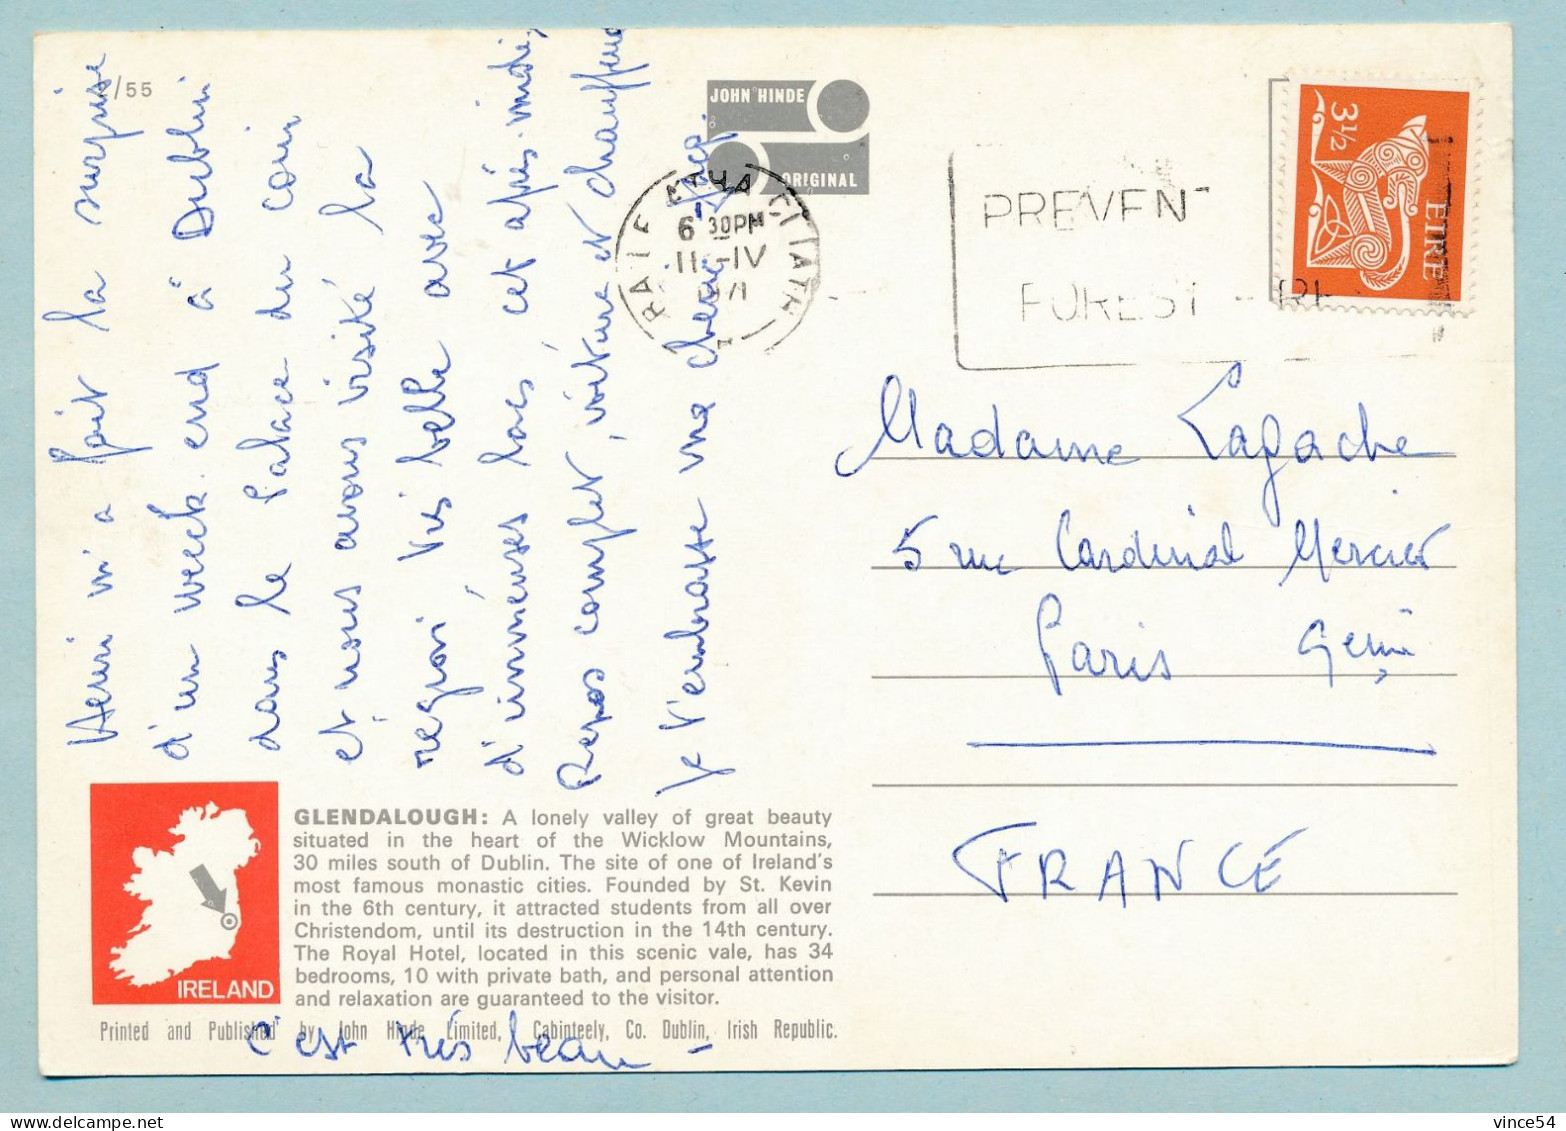 2/55
Henri m'a fait la surprise
d'un week-end à Dublin
dans le Palace du coin
et nous avons visité la
région très belle avec
d'immenses lacs, cet après-midi,
Repos complet, voiture et chauffeur
Je t'embrasse ma cherie
JOHN HINDE
ORIGINAL
BAILE ÁTHA CLIATH
6 30PM
11-IV
1971
PREVENT
FOREST
3½
EIRE
Madame Lagache
5 rue Cardinal Mercier
Paris 9em
FRANCE
IRELAND
GLENDALOUGH: A lonely valley of great beauty
situated in the heart of the Wicklow Mountains,
30 miles south of Dublin. The site of one of Ireland's
most famous monastic cities. Founded by St. Kevin
in the 6th century, it attracted students from all over
Christendom, until its destruction in the 14th century.
The Royal Hotel, located in this scenic vale, has 34
bedrooms, 10 with private bath, and personal attention
and relaxation are guaranteed to the visitor.
Printed and Published by John Hinde Limited, Cabinteely, Co. Dublin, Irish Republic.
C'est très beau -
vince54